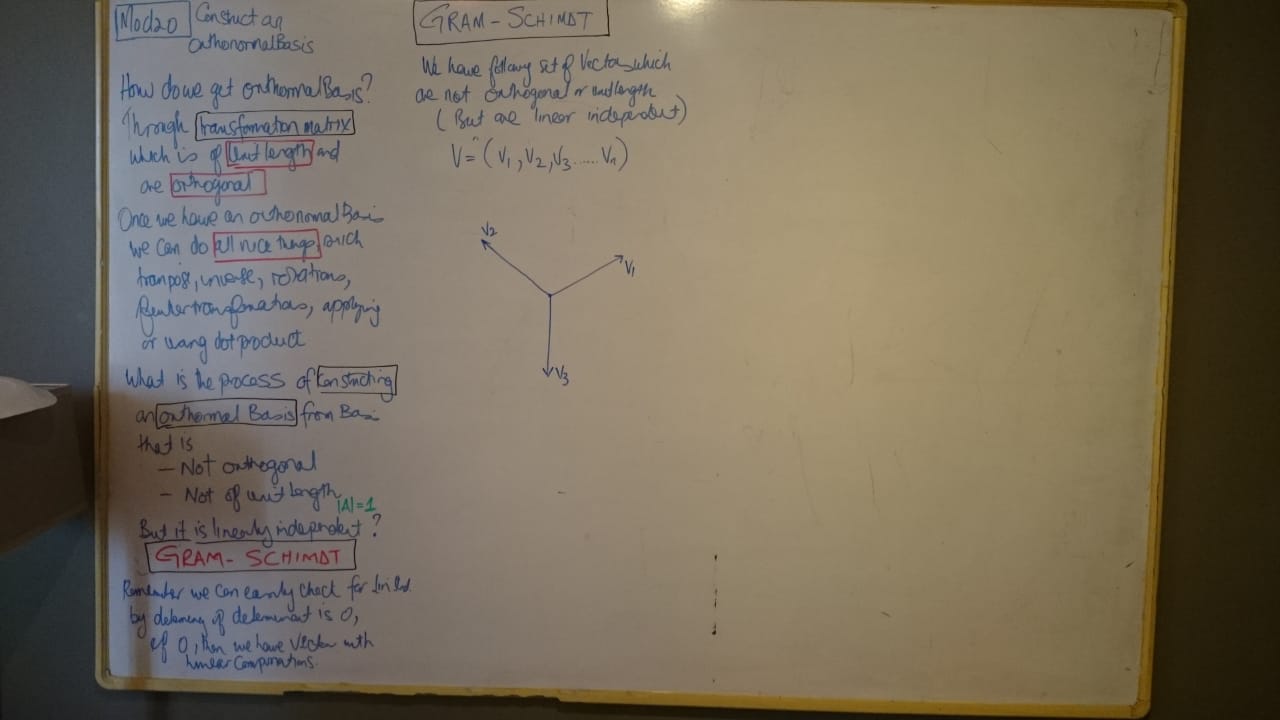 Mod20 Constuct an
orthonormalBasis
How do we get orthormalBasis?
Through transformation matrix
which is of Unit length and
are orthogonal
Once we have an orthonormal Basis
we can do all nice things, such
tranpose, inverse, rotations,
transformations, applying
or using dot product
What is the process of Constucting
an orthormal Basis from Basi
that is
- Not orthogonal
- Not of unit length
|A|=1
But it is linearly independent?
GRAM- SCHIMDT
Remember we can easily check for
by of determinant is 0,
if 0, then we have Vector with
linear
GRAM - SCHIMDT
We have following set of Vectors which
are not orthogonal or unit length
(But are linear independent)
V= (V1, V2, V3......Vn)
V2
V1
V3